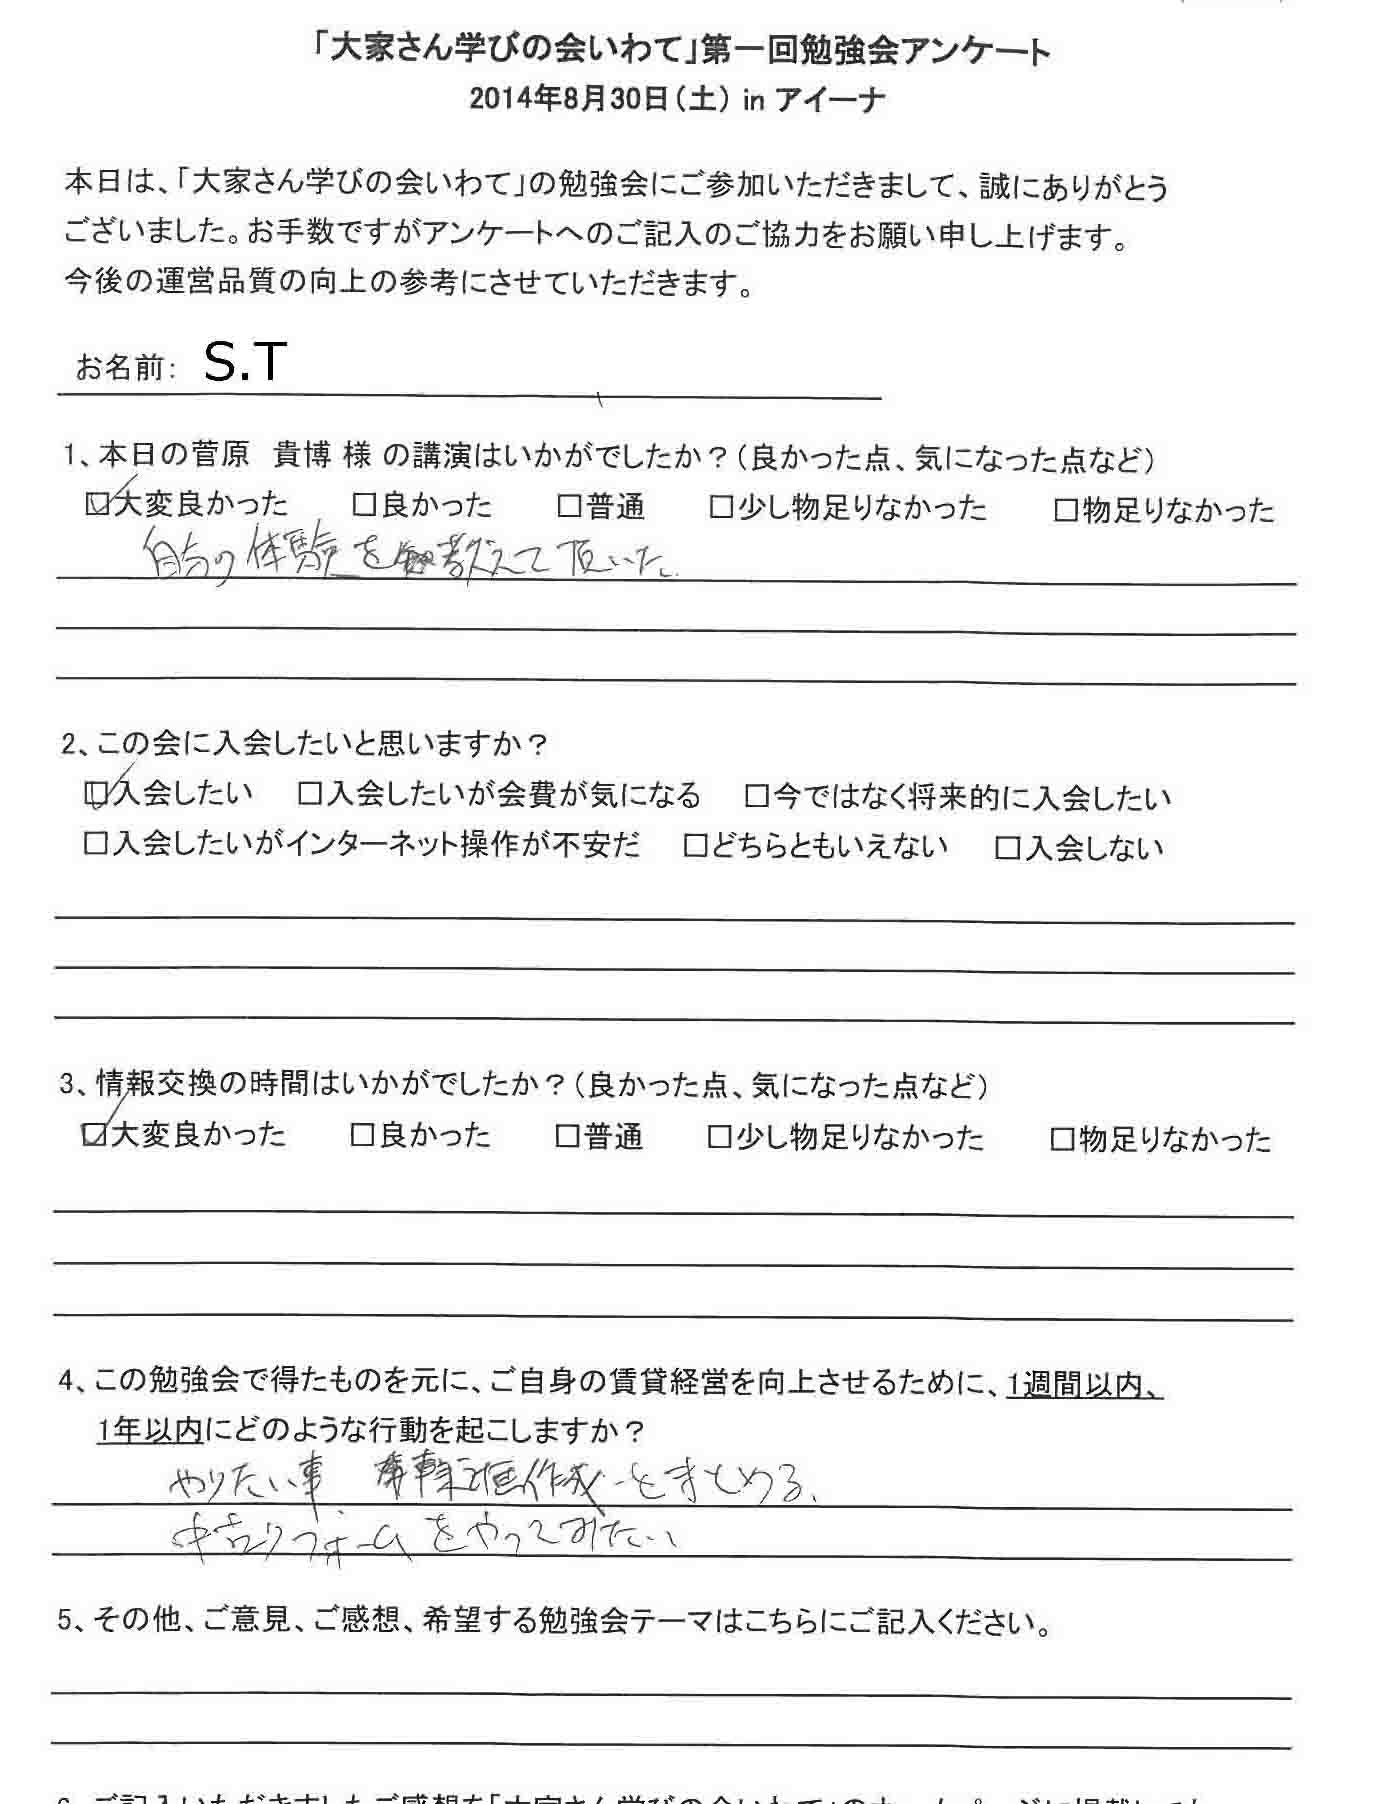 「大家さん学びの会いわて」第一回勉強会アンケート
2014年8月30日(土) in アイーナ
本日は、「大家さん学びの会いわて」の勉強会にご参加いただきまして、誠にありがとう
ございました。お手数ですがアンケートへのご記入のご協力をお願い申し上げます。
今後の運営品質の向上の参考にさせていただきます。
お名前: S.T
1、本日の菅原 貴博 様 の講演はいかがでしたか?(良かった点、気になった点など)
☑大変良かった □良かった □普通 □少し物足りなかった □物足りなかった
自らの体験を教えて頂いた。
2、この会に入会したいと思いますか?
☑入会したい □入会したいが会費が気になる □今ではなく将来的に入会したい
□入会したいがインターネット操作が不安だ □どちらともいえない □入会しない
3、情報交換の時間はいかがでしたか?(良かった点、気になった点など)
☑大変良かった □良かった □普通 □少し物足りなかった □物足りなかった
4、この勉強会で得たものを元に、ご自身の賃貸経営を向上させるために、1週間以内、
1年以内にどのような行動を起こしますか?
やりたい事 作成をまとめる、
中古リフォームをやってみたい
5、その他、ご意見、ご感想、希望する勉強会テーマはこちらにご記入ください。